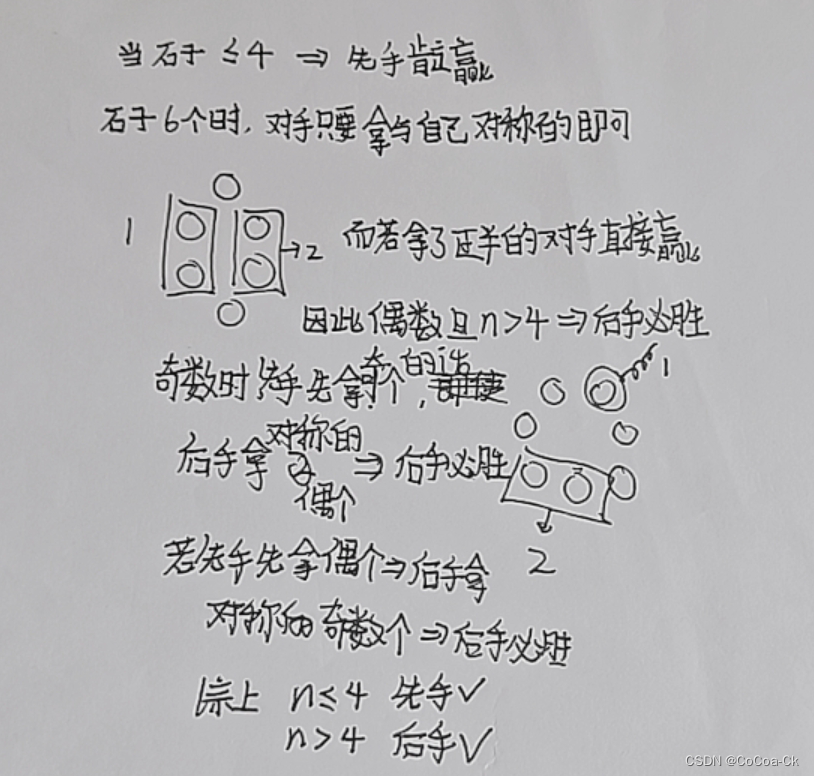 当石子 ≤4 ⇒ 先手肯定赢
石子6个时，对手只要拿与自己对称的即可
1
→2
而若拿了正半的对手直接赢
因此偶数且n>4⇒后手必胜
奇数时先手先拿奇的话个，
1
后手拿对称的偶个⇒后手必胜
2
若先手先拿偶个⇒后手拿
对称的奇数个⇒后手必胜
综上 n≤4 先手✓
n>4 后手✓
CSDN @CoCoa-Ck